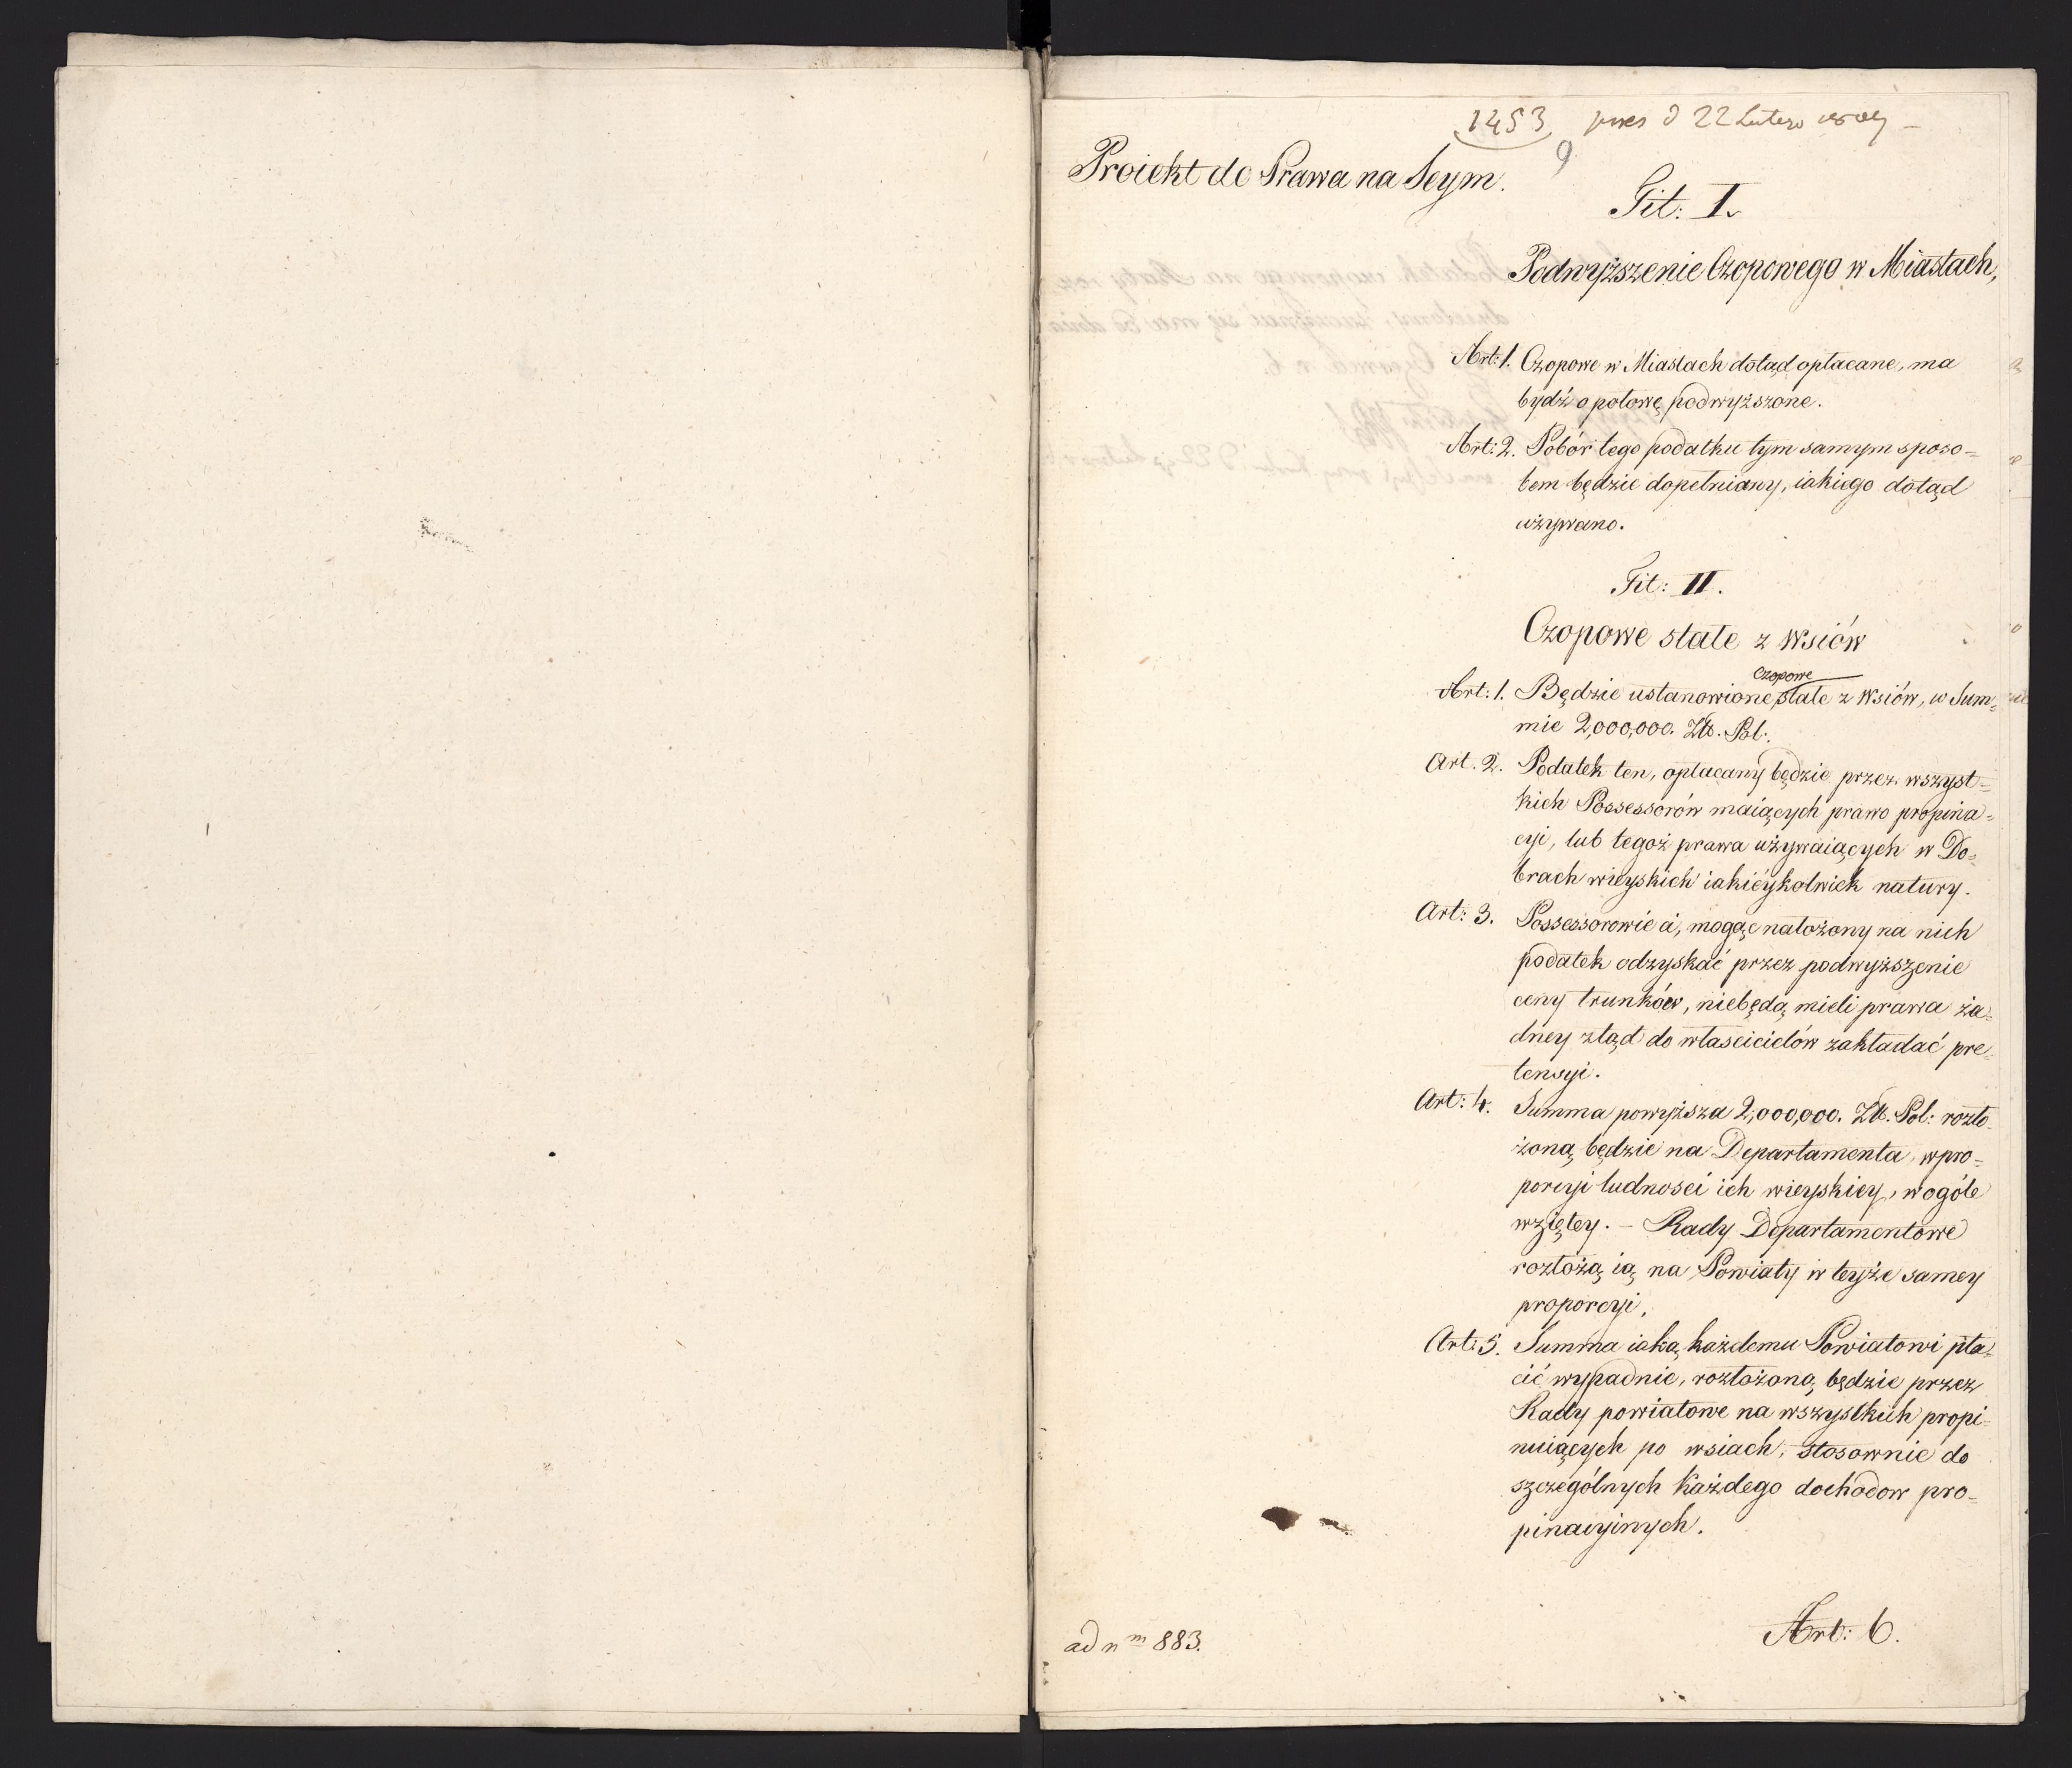 1453 pres d 22 Lutego 1809
9
Proiekt do Prawa na Seym.
Tit: I.
Podwyższenie Czopowego w Miastach,
Art: 1. Czopowe w Miastach dotąd opłacane, ma
bydź o połowę podwyższone.
Art: 2. Pobór tego podatku tym samym sposo=
bem będzie dopełniany, iakiego dotąd
używano.
Tit: II.
Czopowe stałe z Wsiów
Czopowe
Art: 1. Będzie ustanowione stałe z Wsiów, w Sum=
mie 2,000,000. Złł. Pol:.
Art. 2. Podatek ten, opłacany będzie przez wszyst=
kich Possessorów maiących prawo propina=
cyi, lub tegoż prawa używaiących w Do=
brach wieyskich iakieykolwiek natury.
Art: 3. Possessorowie ci, mogąc nałożony na nich
podatek odzyskać przez podwyższenie
ceny trunków, niebędą mieli prawa ża=
dney ztąd do właścicielów zakładać pre=
tensyi.
Art: 4. Summa powyższa 2,000,000. Złł. Pol: rozło=
żoną będzie na Departamenta, w pro=
porcyi ludnosci ich wieyskiey, w ogóle
wziętey. – Rady Departamentowe
rozłożą ią na Powiaty w teyże samey
proporcyi.
Art: 5. Summa iaką każdemu Powiatowi pła=
cić wypadnie, rozłożoną będzie przez
Rady powiatowe na wszystkich propi=
nuiących po wsiach, stosownie do
szczególnych każdego dochodow pro=
pinacyinych.
Art: 6.
ad nm 883.